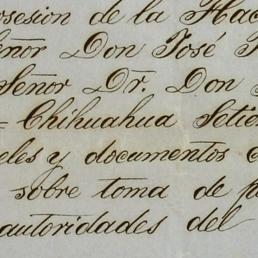 osesion de la Hac
eñor Don José
Señor Dr. Don
= Chihuahua Setie
eles y documentos
sobre toma de p
autoridades del